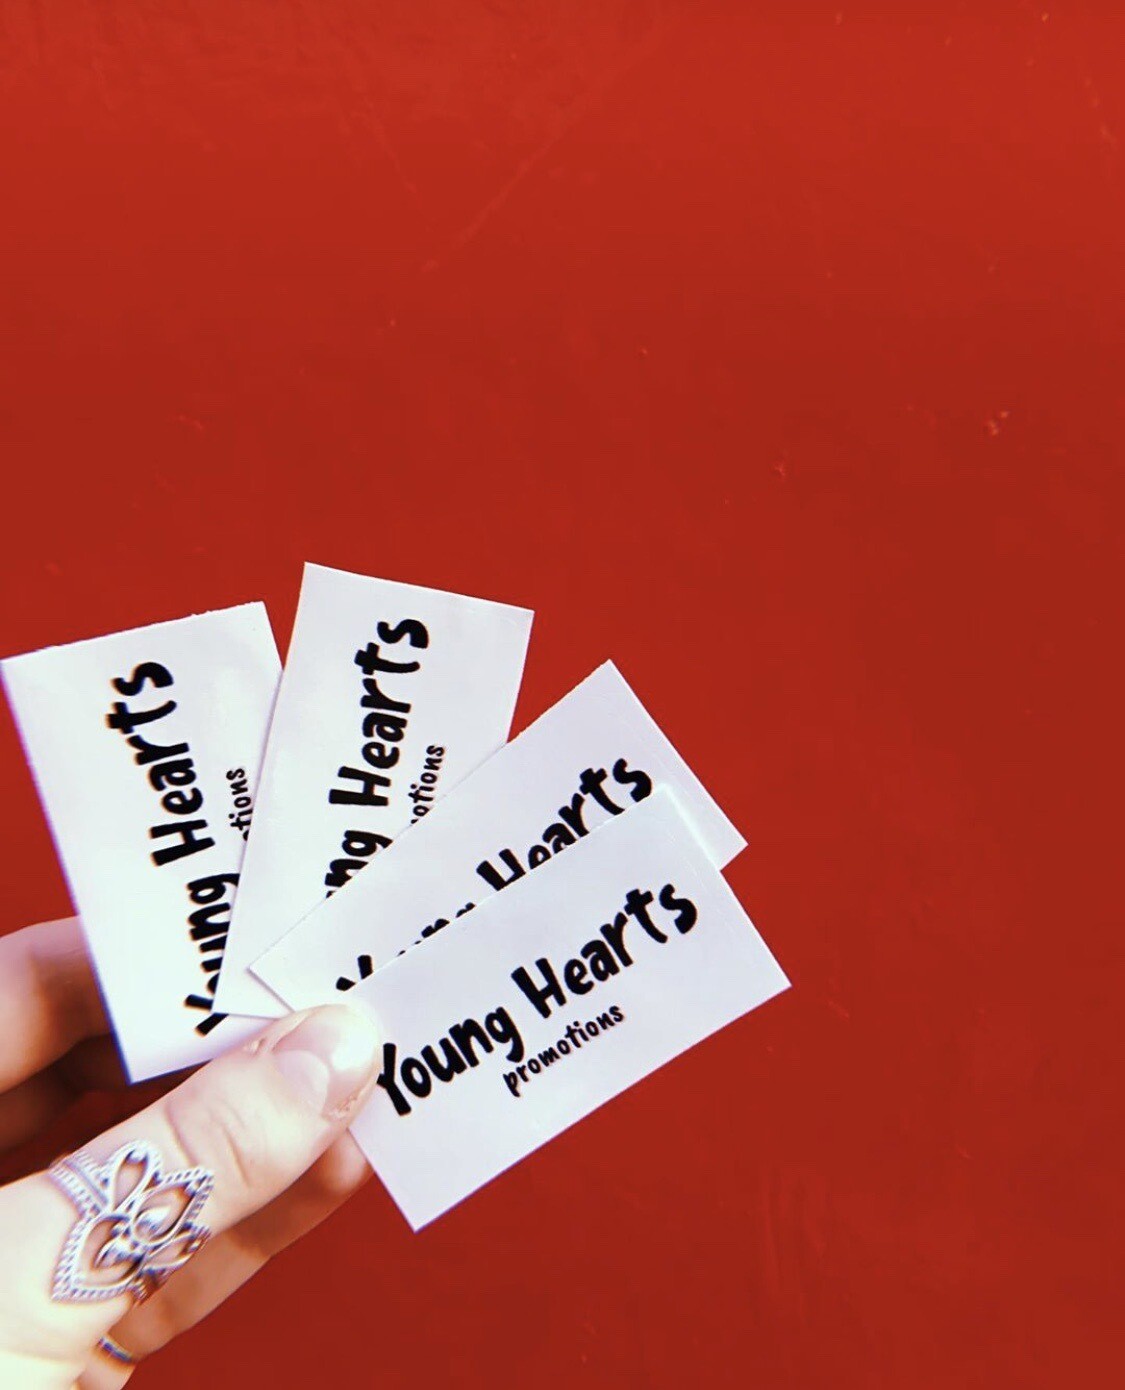 Young Hearts
tions
ng Hearts
otions
Young Hearts
Young Hearts
promotions